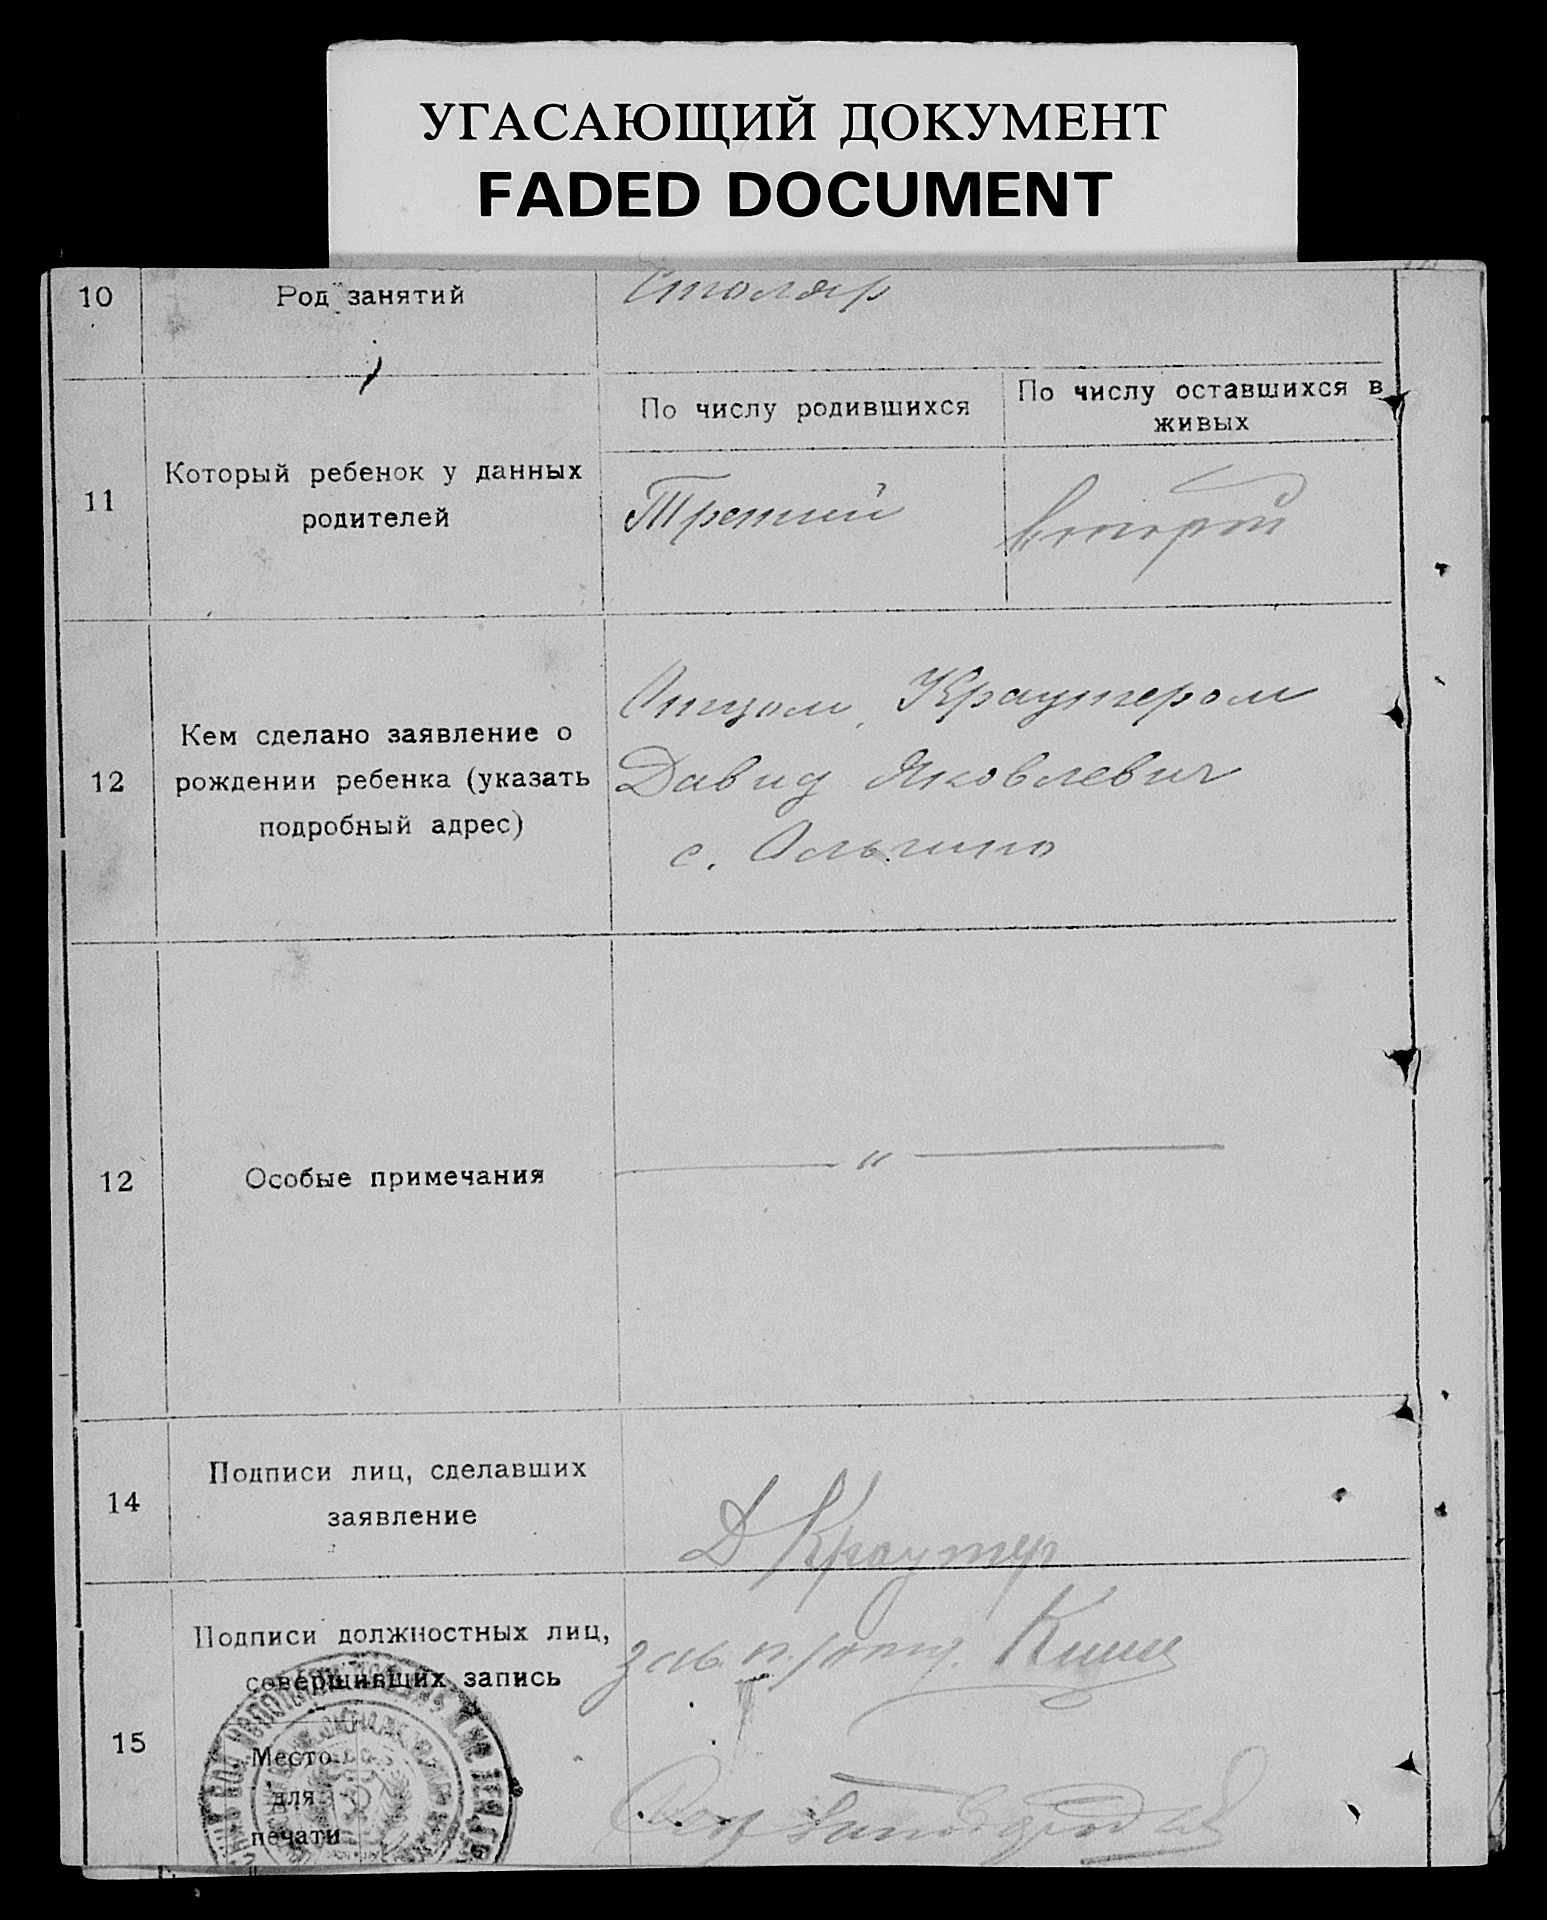 УГАСАЮЩИЙ ДОКУМЕНТ
FADED DOCUMENT
10 Род занятий Столяр
11 Который ребенок у данных
родителей
По числу родившихся
Третий
По числу оставшихся в
живых
второй
12 Кем сделано заявление о
рождении ребенка (указать
подробный адрес)
Отцом, Краутером
Давид Яковлевич
с. Ольгино
12 Особые примечания — „ —
14 Подписи лиц, сделавших
заявление
Д Краутер
15 Подписи должностных лиц,
совершивших запись
зав. п/отд.
Место
для
печати